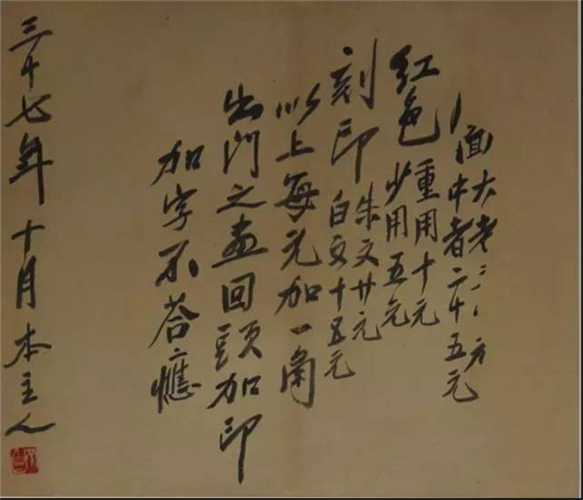 面大者三元
中者二十五元
紅色重用十元
少用五元
刻印朱文廿元
白文十五元
以上每元加一角
出門之畫回頭加印
加字不荅應
三十七年十月本主人